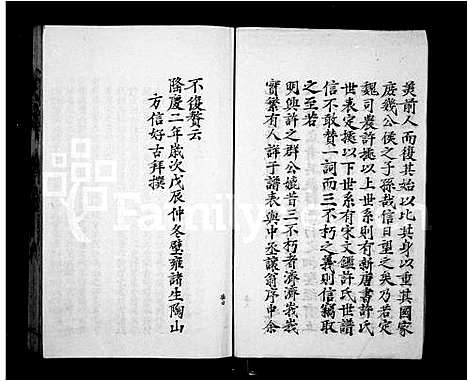 吳前人而後其始以比其身以重其國家
庶幾公侯之子孫哉信日望之矣乃若定
魏司農許據以上世系則有新唐書許氏
世表定據以下世系有宋文鑑許氏世譜
信不敢贊一詞而三不朽之義則信竊取
之至若
明興許之群公媲昔三不朽者濟濟峩峩
實繁有人詳于譜表與中丞讓翁序中余
不復贅云
隆慶二年歲次戊辰仲冬壁雍諸生陶山
方信好古拜撰